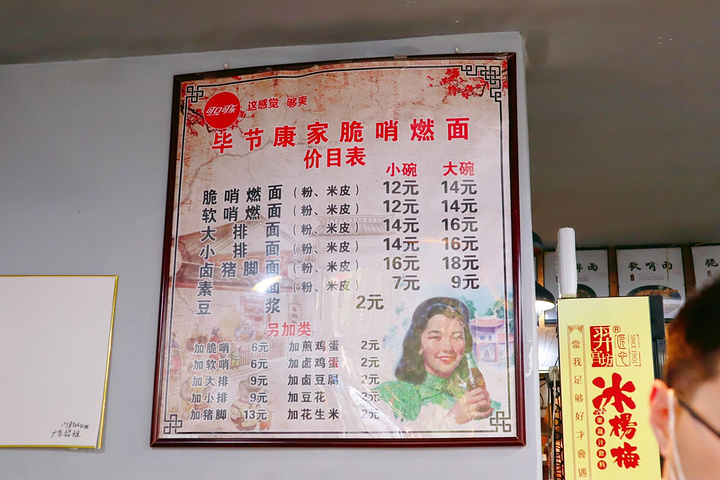 可口可乐
这感觉 够爽
毕节康家脆哨燃面
价目表
小碗 大碗
脆哨燃面（粉、米皮） 12元 14元
软哨燃面（粉、米皮） 12元 14元
大排面（粉、米皮） 14元 16元
小排面（粉、米皮） 14元 16元
卤猪脚面（粉、米皮） 16元 18元
素面（粉、米皮） 7元 9元
豆浆 2元
另加类
加脆哨 6元 加煎鸡蛋 2元
加软哨 6元 加卤鸡蛋 2元
加大排 9元 加卤豆腐 2元
加小排 9元 加豆花 2元
加猪脚 13元 加花生米 2元
软哨面
脆
羿宫坊®
匠心
SINCE 1901
當我足够好才會遇
冰楊梅